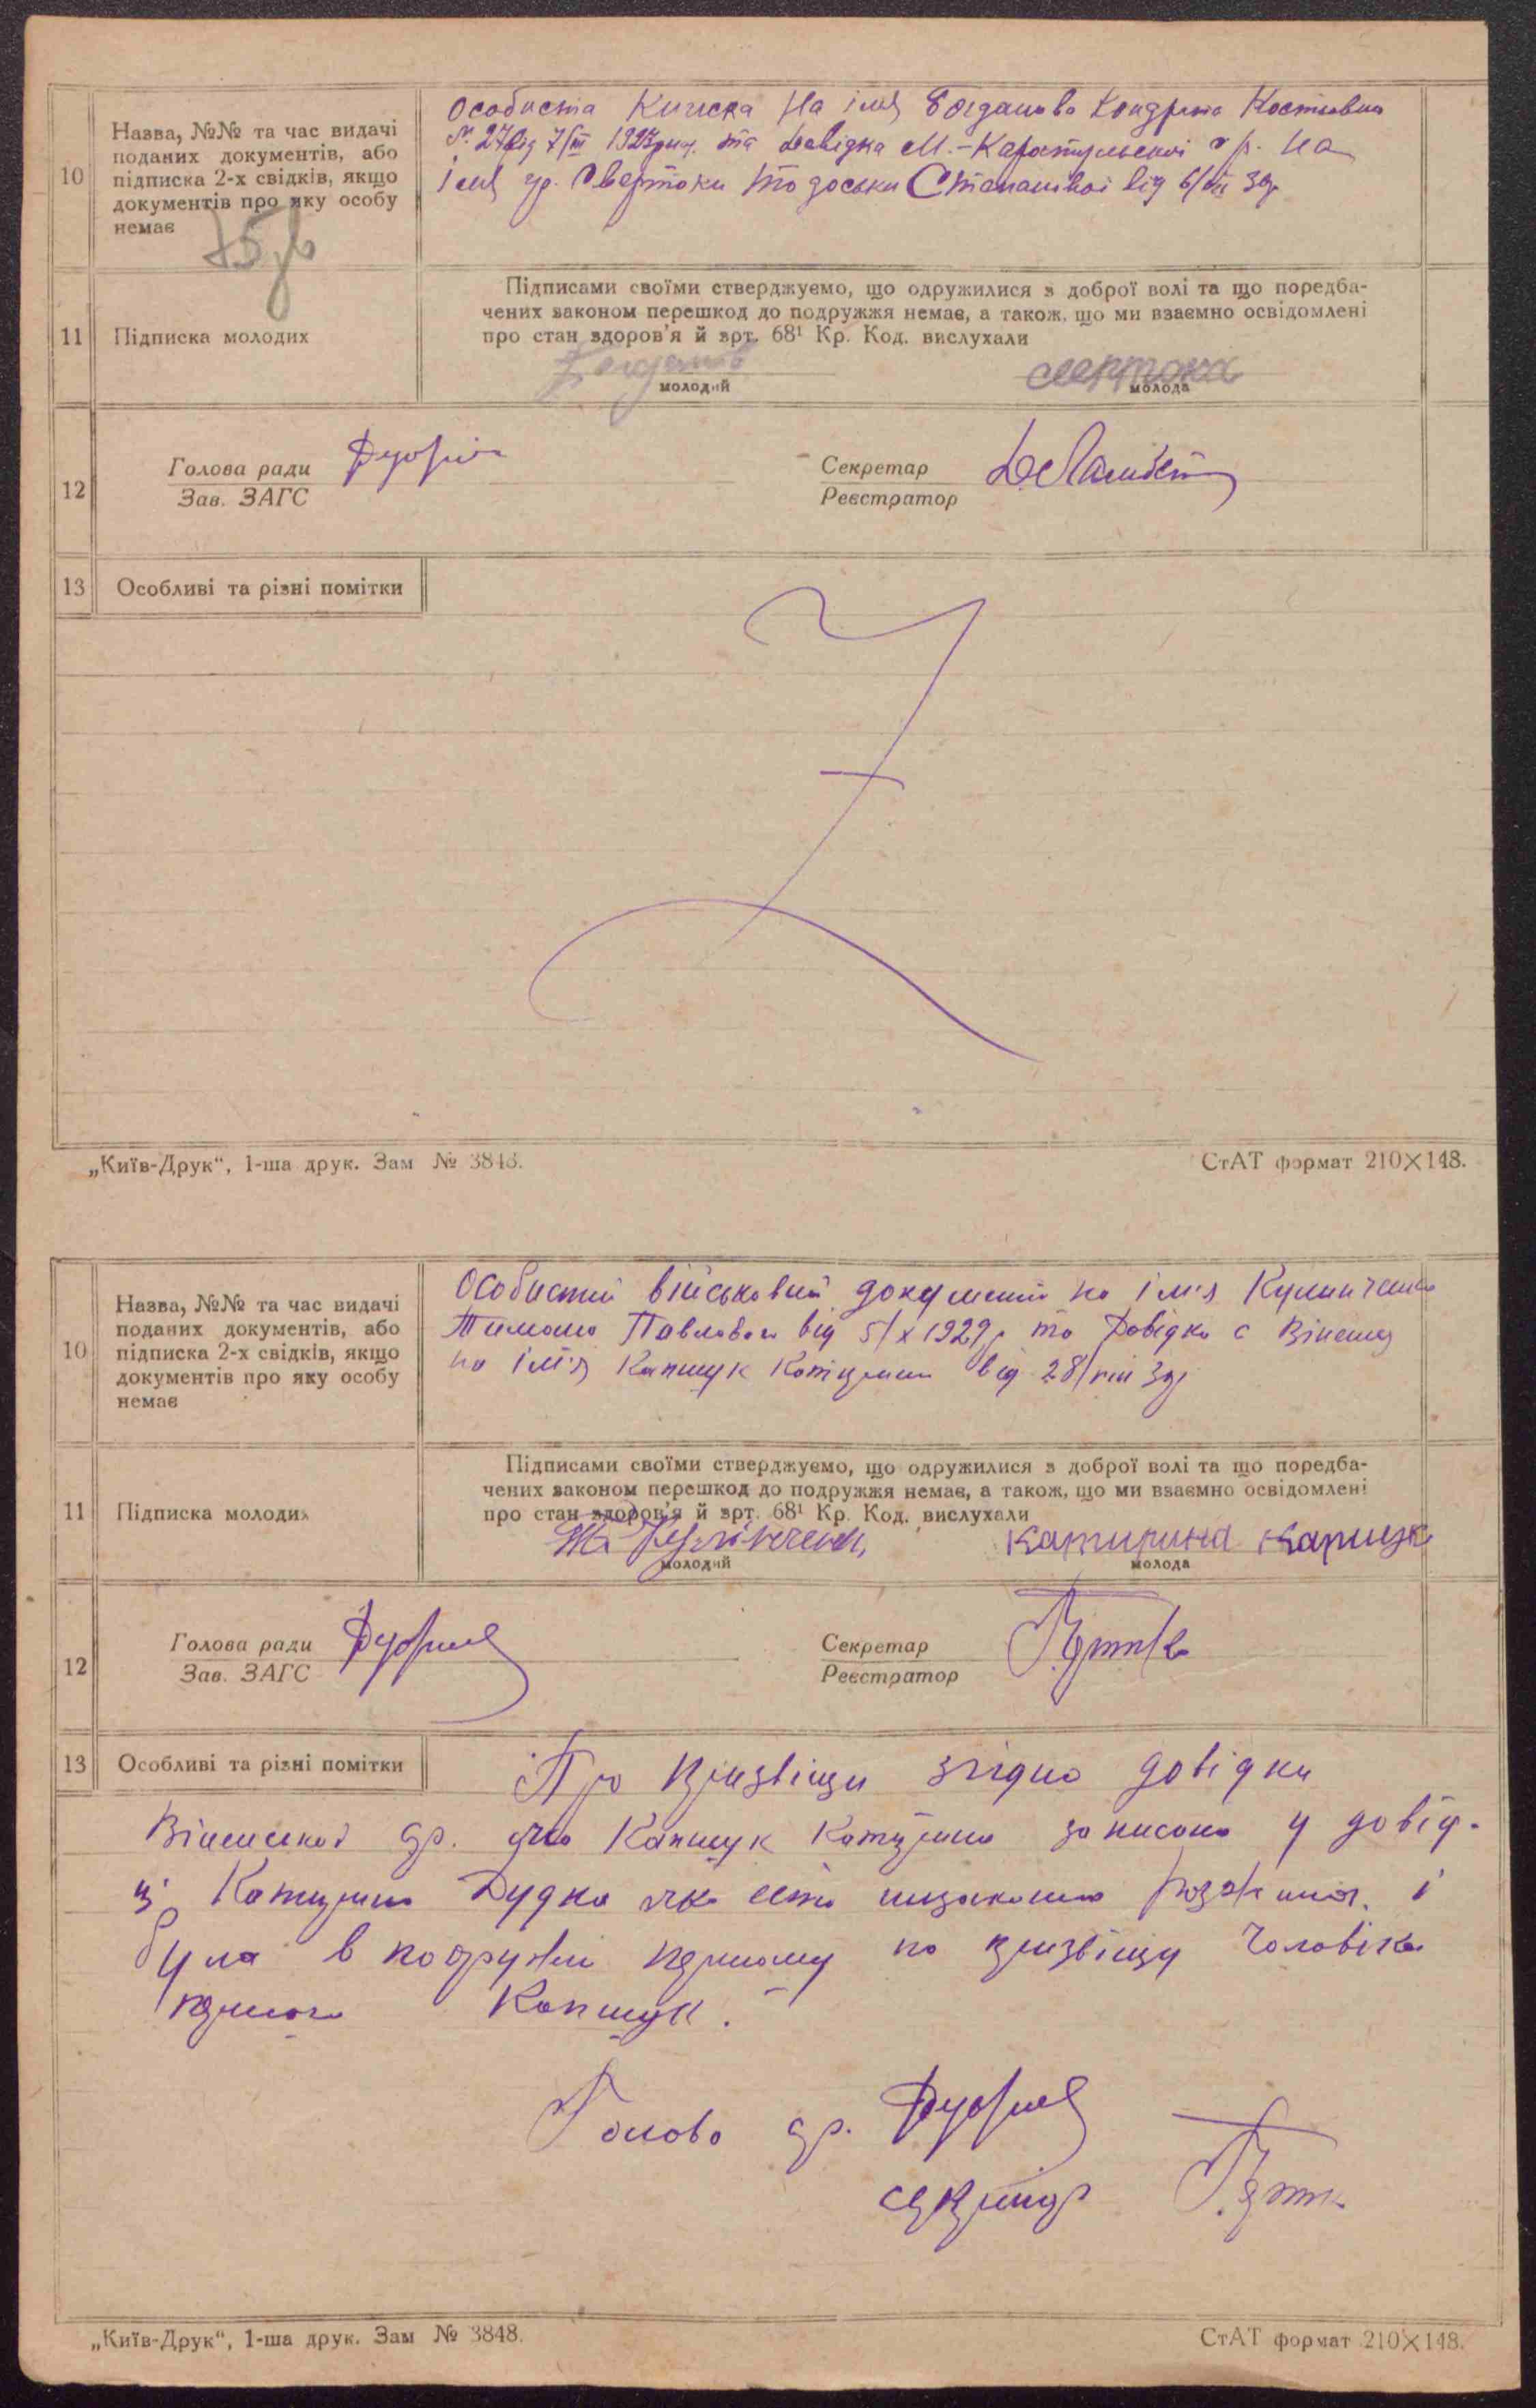 10 Назва, №№ та час видачі поданих документів, або підписка 2-х свідків, якщо документів про яку особу немає
Особиста Книжка На імя Богданова Кондрата
№ 27 від 7/III та Довідка М.-Каратульської с/р. На
імя гр. Свертоки Тодоськи Степанівної від 6/
11 Підписка молодих
Підписами своїми стверджуємо, що одружилися з доброї волі та що поредба-
чених законом перешкод до подружжя немає, а також, що ми взаємно освідомлені
про стан здоров'я й арт. 68¹ Кр. Код. вислухали
Богданов
молодий молода
12 Голова ради Секретар
Зав. ЗАГС Реєстратор
13 Особливі та різні помітки
„Київ-Друк“, 1-ша друк. Зам № 3848. СтАТ формат 210×148.
10 Назва, №№ та час видачі поданих документів, або підписка 2-х свідків, якщо документів про яку особу немає
Особистий військовий документ на ім'я Кулинченка
Тимоша Павловича від 5/X 1929р та Довідка с
на ім'я Капшук Катерини від 28/VIII 30р
11 Підписка молодих
Підписами своїми стверджуємо, що одружилися з доброї волі та що поредба-
чених законом перешкод до подружжя немає, а також, що ми взаємно освідомлені
про стан здоров'я й арт. 68¹ Кр. Код. вислухали
Катирина Капшук
молодий молода
12 Голова ради Секретар
Зав. ЗАГС Реєстратор
13 Особливі та різні помітки
Про прізвіщи згідно довідки
с/р. що Капшук Катерина записана у довід-
ці Катерина Дудка яка і
була в подружжі першому по прізвіщу чоловіка
першого Капшук.
Голова с/р.
секретар
„Київ-Друк“, 1-ша друк. Зам № 3848. СтАТ формат 210×148.